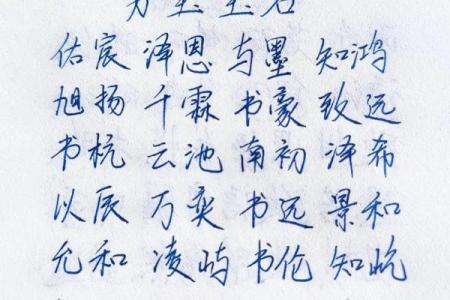 佑宸 泽恩 与墨 知鸿
旭扬 千霖 书豪 致远
书杭 云池 南初 泽希
以辰 万奕 书远 景和
允和 凌屿 书伦 知屹